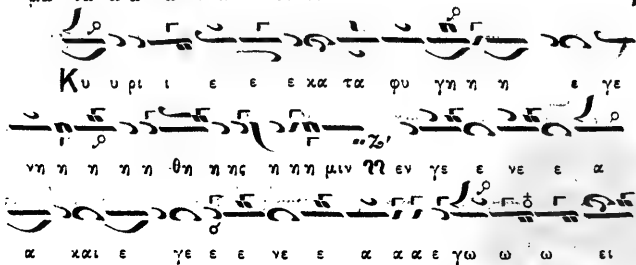 Κυ υ ρι ι ε ε ε κα τα φυ γη η η ε γε
νη η η η η θη η ης η ηη μιν εν γε ε νε ε α
α και ε γε ε ε νε ε α α α ε γω ω ω ει